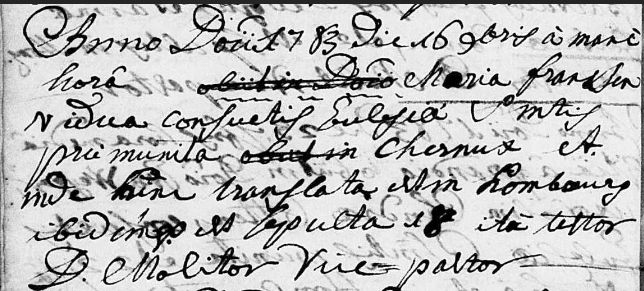 Anno Dōni 1783 die 16 9bris à mane
horâ obiit in Dn̄o Maria fransen
vidua consuetis Ecclesiæ S̄mtis
præmunita obiit in Chernux et
inde hinc translata est in hombourg
ibidemq3 est sepulta 18 ità testor
D. Molitor Vice-pastor